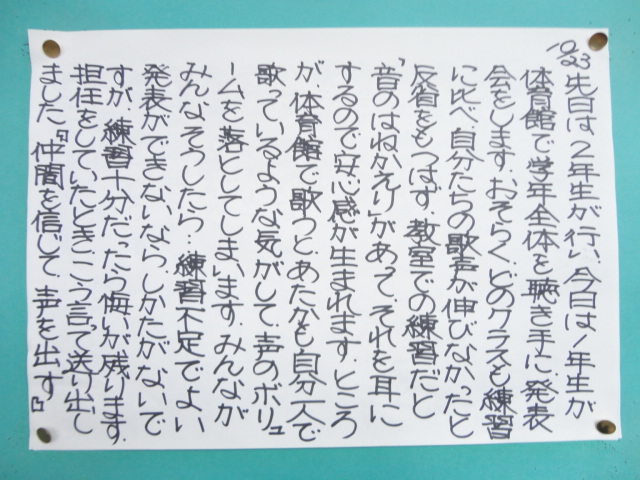 10/23
先日は2年生が行い、今日は1年生が
体育館で学年全体を聴き手に、発表
会をします。おそらく、どのクラスも練習
に比べ、自分たちの歌声が伸びなかったと
反省をもつはず。教室での練習だと
「音のはねかえり」があって、それを耳に
するので安心感が生まれます。ところ
が、体育館で歌うと、あたかも自分一人で
歌っているような気がして、声のボリュ
ームを落としてしまいます。みんなが
みんなそうしたら…練習不足でよい
発表ができないなら、しかたがないで
すが、練習十分だったら悔いが残ります。
担任をしていたとき、こう言って送り出し
ました。『仲間を信じて、声を出す』